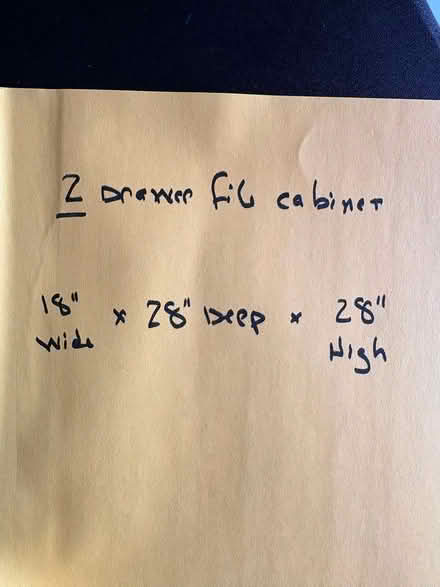 2 Drawer File cabinet
18" x 28" Deep x 28"
Wide High